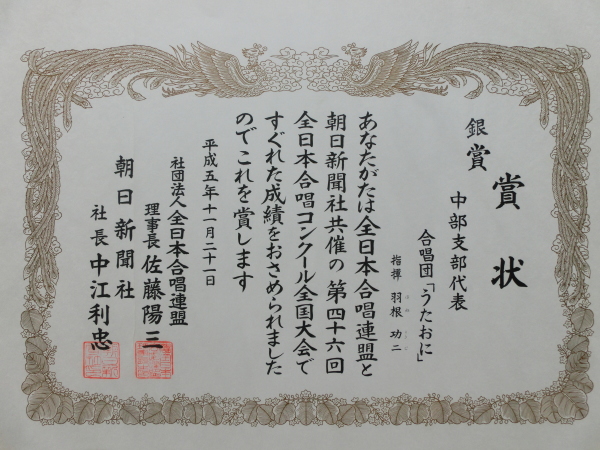 賞状
銀賞
中部支部代表
合唱団「うたおに」
指揮 羽根功二
あなたがたは全日本合唱連盟と
朝日新聞社共催の第四十六回
全日本合唱コンクール全国大会で
すぐれた成績をおさめられました
のでこれを賞します
平成五年十一月二十一日
社団法人全日本合唱連盟
理事長 佐藤陽三
朝日新聞社
社長 中江利忠